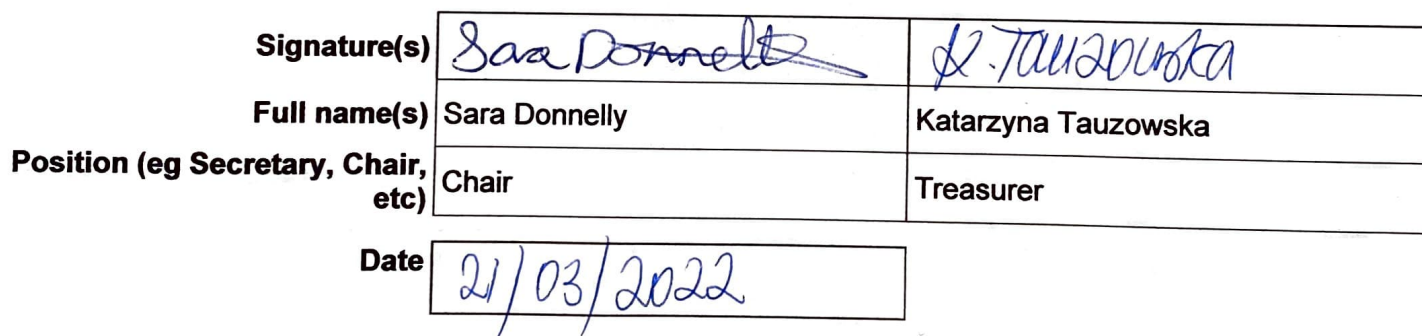 Signature(s) Sara Donnelly K. Tauzowska
Full name(s) Sara Donnelly Katarzyna Tauzowska
Position (eg Secretary, Chair, etc) Chair Treasurer
Date 21/03/2022